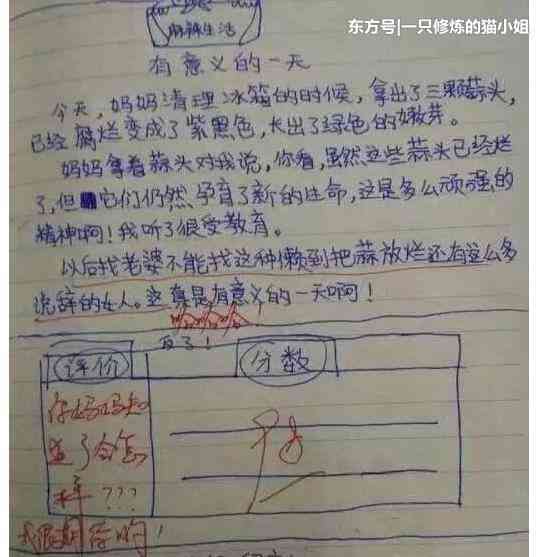 东方号|一只修炼的猫小姐
麻辣生活
有意义的一天
今天，妈妈清理冰箱的时候，拿出了三颗蒜头，
已经腐烂变成了紫黑色，长出了绿色的嫩芽。
妈妈拿着蒜头对我说，你看，虽然这些蒜头已经烂
了，但它们仍然孕育了新的生命，这是多么顽强的
精神啊！我听了很受教育。
以后找老婆不能找这种懒到把蒜放烂还有这么多
说辞的女人。这真是有意义的一天啊！
哈哈哈
评价
分数
你妈妈知
道了会怎
样？？？
98